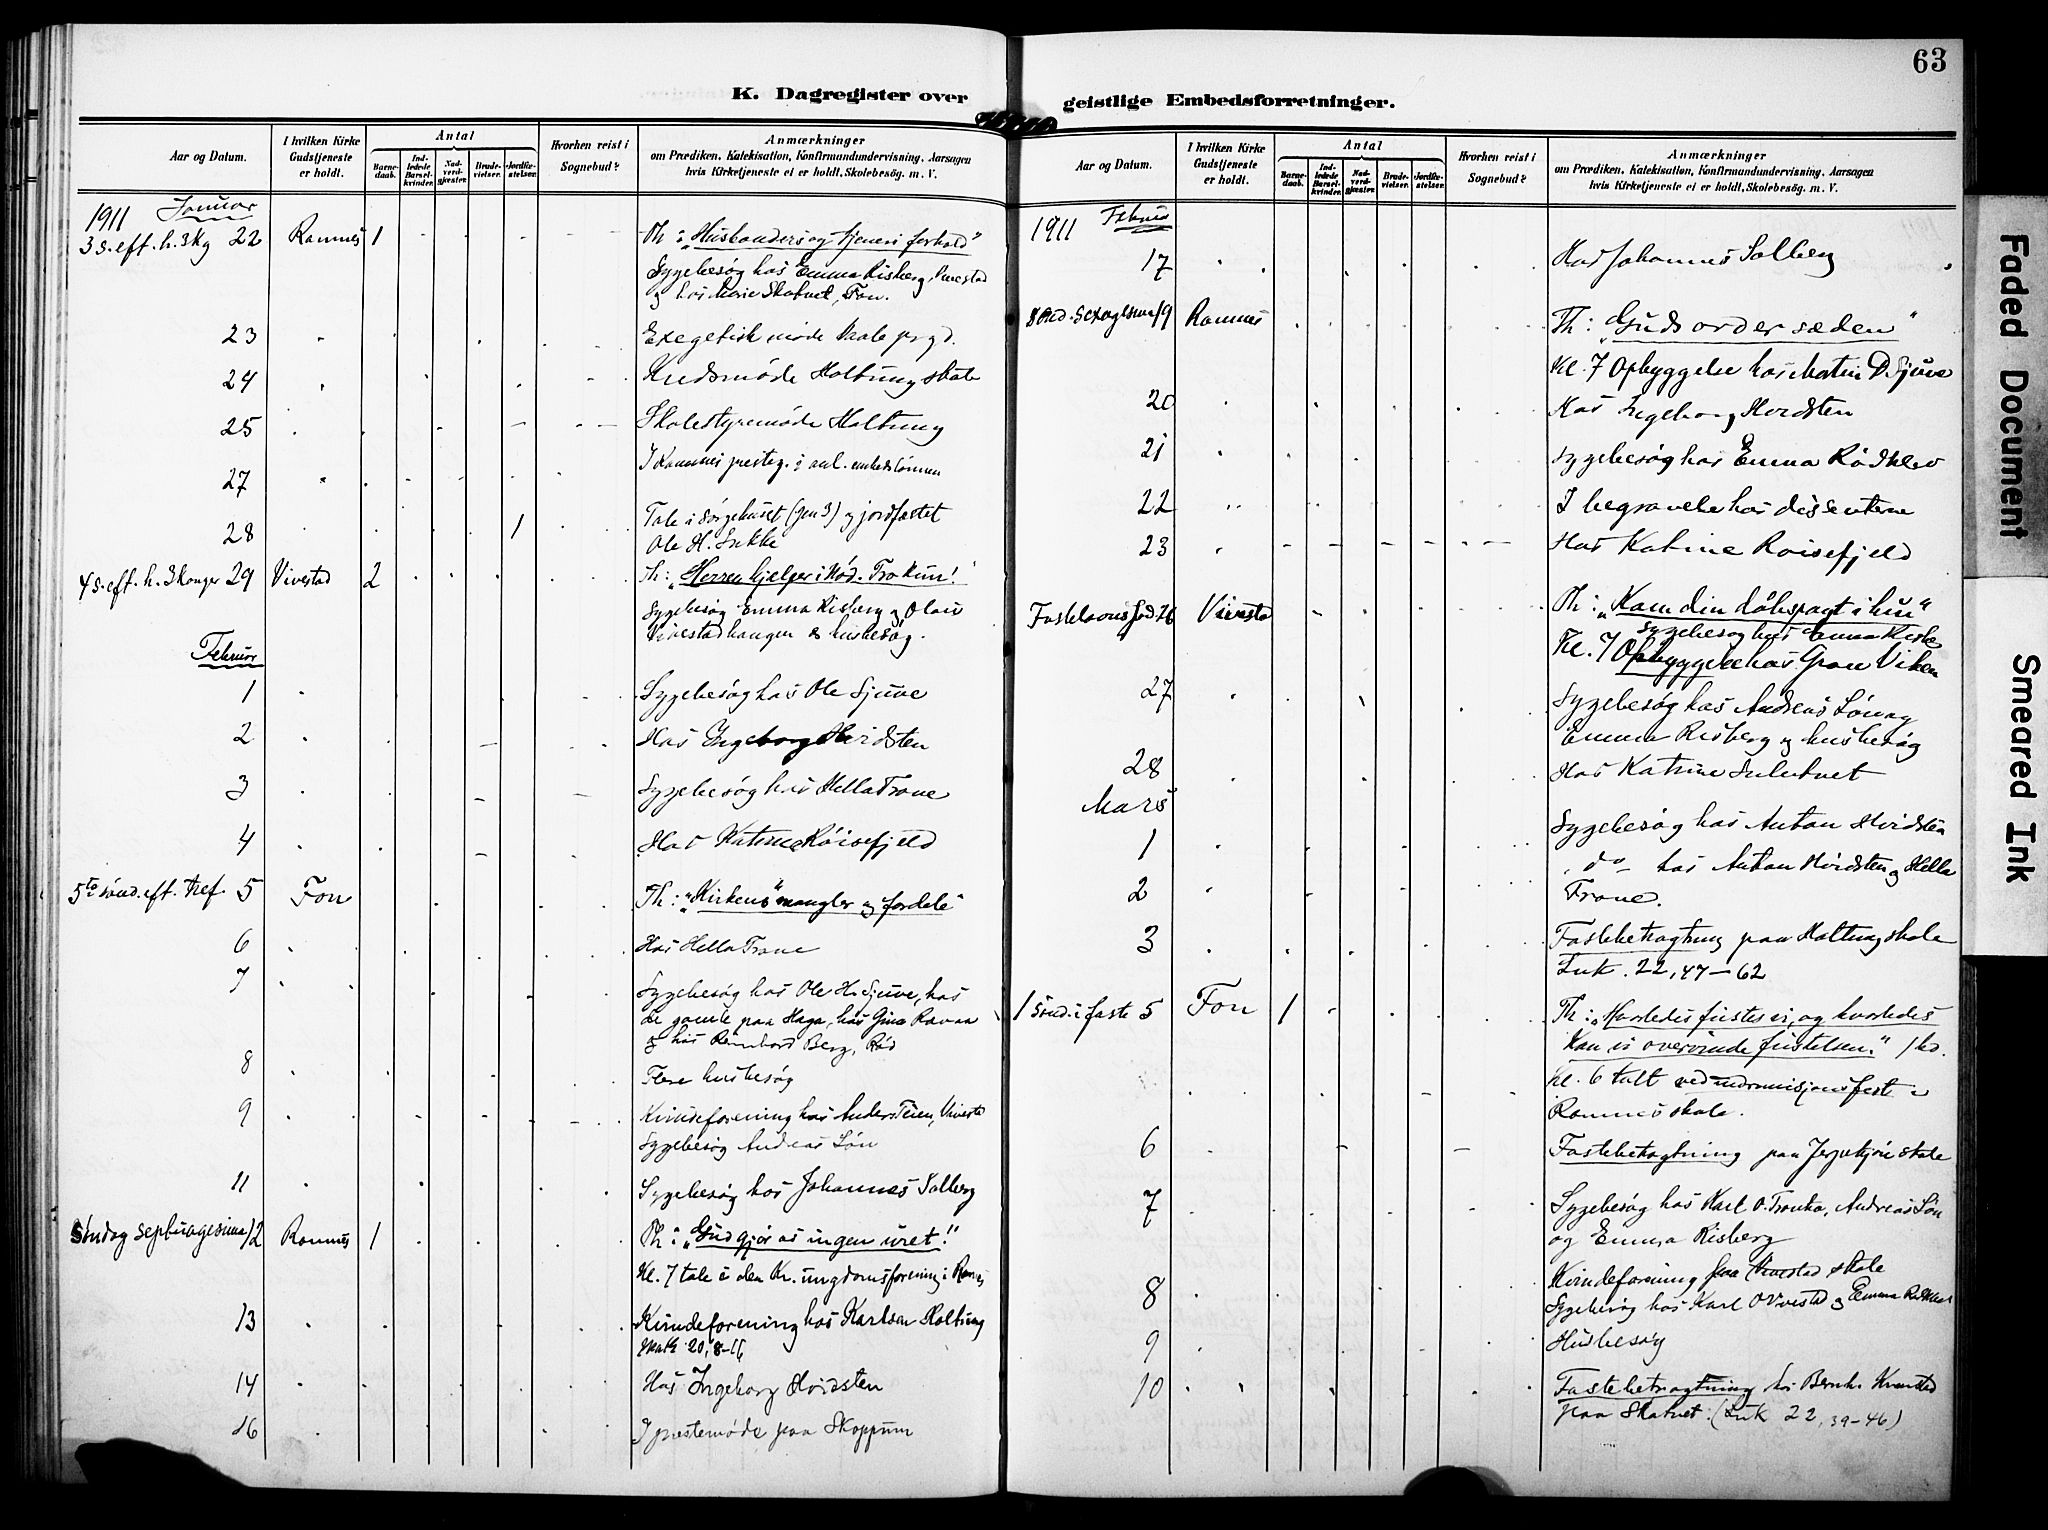 63
K. Dagregister over geistlige Embedsforretninger.
Aar og Datum.
I hvilken Kirke Gudstjeneste er holdt.
Antal
Barne-daab.
Ind-ledede Barsel-kvinder.
Nad-verd-gjæster.
Brude-vielser.
Jordfæ-stelser.
Hvorhen reist i Sognebud?
Anmærkninger
om Prædiken, Katekisation, Konfirmandundervisning, Aarsagen
hvis Kirketjeneste ei er holdt, Skolebesøg. m. V.
1911 Januar
3 s. eft. h. 3 Kg 22 Ramnes 1 Th: „Husbonders og tjeneres forhold"
Sygebesøg hos Emma Risberg, Vivestad
og hos Marie Skatvet, Fon.
23 Exegetisk møde Vaale prgd.
24 Kredsmøde Holtung skole
25 Skolestyremøde Holtung
27 I Ramnes presteg. i anl. embedslønnen
28 1 Tale i sørgehuset (Gen 3) og jordfæstet
Ole H. Sukke
4 s. eft. h. 3 Konger 29 Vivestad 2 Th: „Herren hjelper i nød. Tro kun!"
Sygebesøg Emma Risberg og Olaus
Vivestadhaugen & husbesøg.
Februar
1 Sygebesøg hos Ole Sjuve
2 Hos Ingeborg Hvidsten
3 Sygebesøg hos Hella Trone
4 Hos Katrine Røisefjeld
5te sønd. eft. tref. 5 Fon Th: „Kirkens mangler og fordele"
6 Hos Hella Trone
7 Sygebesøg hos Ole H. Sjuve, hos
de gamle paa Haga, hos Gina Ravaa
og hos Reinhard Berg, Rød
8 Flere husbesøg
9 Kvindeforening hos Anders Teien, Vivestad
Sygebesøg Andreas Løn
11 Sygebesøg hos Johannes Solberg
Søndag septuagesima 12 Ramnes 1 Th: „Gud gjør os ingen uret!"
Kl. 7 tale i den Kr. ungdomsforening i Ramnes
13 Kvindeforening hos Karlsen Holtung
Math 20, 8-16
14 Hos Ingeborg Hvidsten
16 I prestemøde paa Skoppum
Aar og Datum.
I hvilken Kirke Gudstjeneste er holdt.
Antal
Barne-daab.
Ind-ledede Barsel-kvinder.
Nad-verd-gjæster.
Brude-vielser.
Jordfæ-stelser.
Hvorhen reist i Sognebud?
Anmærkninger
om Prædiken, Katekisation, Konfirmandundervisning, Aarsagen
hvis Kirketjeneste ei er holdt, Skolebesøg. m. V.
1911 Februar
17 Hos Johannes Solberg
Sønd. Sexagesima 19 Ramnes Th: „Guds ord er sæden"
Kl. 7 Opbyggelse hos Martin D. Sjuve
20 Hos Ingeborg Hvidsten
21 Sygebesøg hos Emma Rødklev
22 I begravelse hos dissenterne
23 Hos Katrine Roisefjeld
Fastelavns sønd. 26 Vivestad Th: „Kom din dåbspagt i hu"
Sygebesøg hos Emma Risbe
Kl. 7 Opbyggelse hos Gran Viken
27 Sygebesøg hos Andreas Løn og
Emma Risberg og husbesøg
28 Hos Katrine
Mars
1 Sygebesøg hos Anton Hvidsten
2 do hos Anton Hvidsten og Hella
Trone.
3 Fastebetragtning paa Holtung skole
Luk. 22, 47-62
1 Sønd. i faste 5 Fon 1 Th: „Hvorledes fristes vi, og hvorledes
kan vi overvinde fristelsen."
Kl. 6 talt ved indremisjonsfest i
Ramnes skole.
6 Fastebetragtning paa skole
7 Sygebesøg hos Karl O. Andreas Løn
og Emma Risberg
8 Kvindeforening paa Vivestad skole
Sygebesøg hos Karl O Vivestad og Emma
9 Husbesøg
10 Fastebetragtning hos Bernh.
paa Skatvet. (Luk 22, 39-46)
Faded Document
Smeared Ink